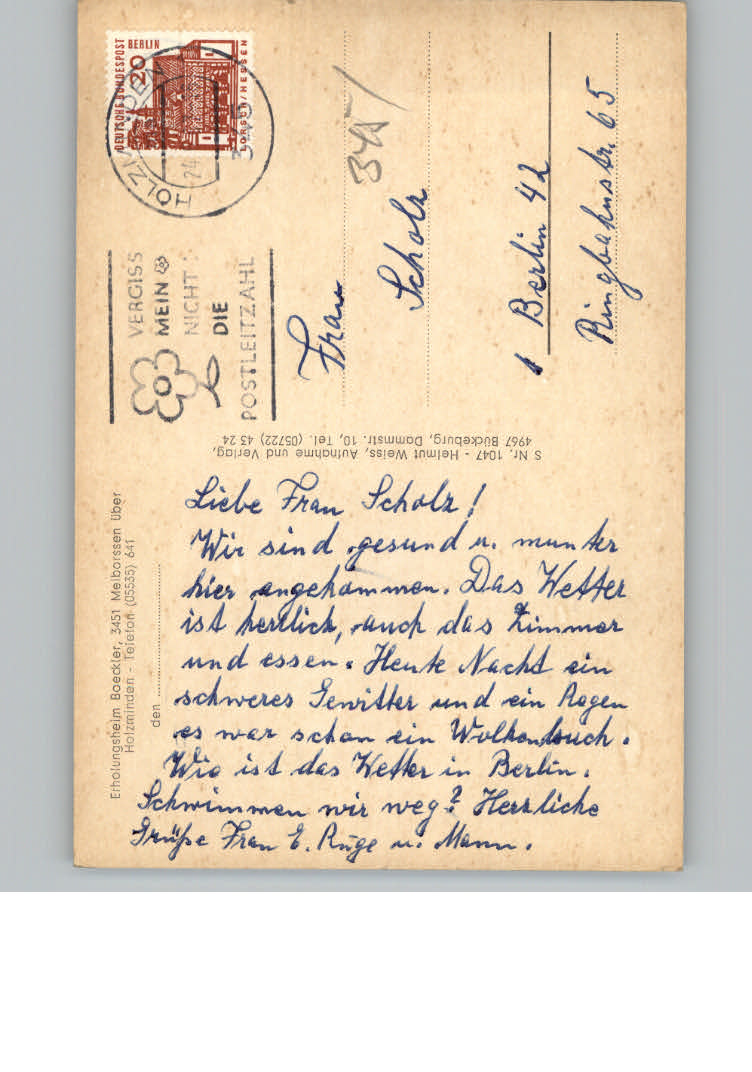 DEUTSCHE BUNDESPOST BERLIN
20
LORSCH/HESSEN
HOLZMINDEN
24
345
VERGISS
MEIN
NICHT
DIE
POSTLEITZAHL
345
Frau
Scholz
1 Berlin 42
Ringbahnstr. 65
S Nr. 1047 - Helmut Weiss, Aufnahme und Verlag,
4967 Bückeburg, Dammstr. 10, Tel. (05722) 43 24
Erholungsheim Baeckler, 3451 Meiborssen über
Holzminden - Telefon (05535) 641
den
Liebe Frau Scholz!
Wir sind gesund u. munter
hier angekommen. Das Wetter
ist herrlich, auch das Zimmer
und essen. Heute Nacht ein
schweres Gewitter und ein Regen
es war schon ein Wolkenbruch.
Wie ist das Wetter in Berlin.
Schwimmen wir weg? Herzliche
Grüße Frau E. Ruge u. Mann.